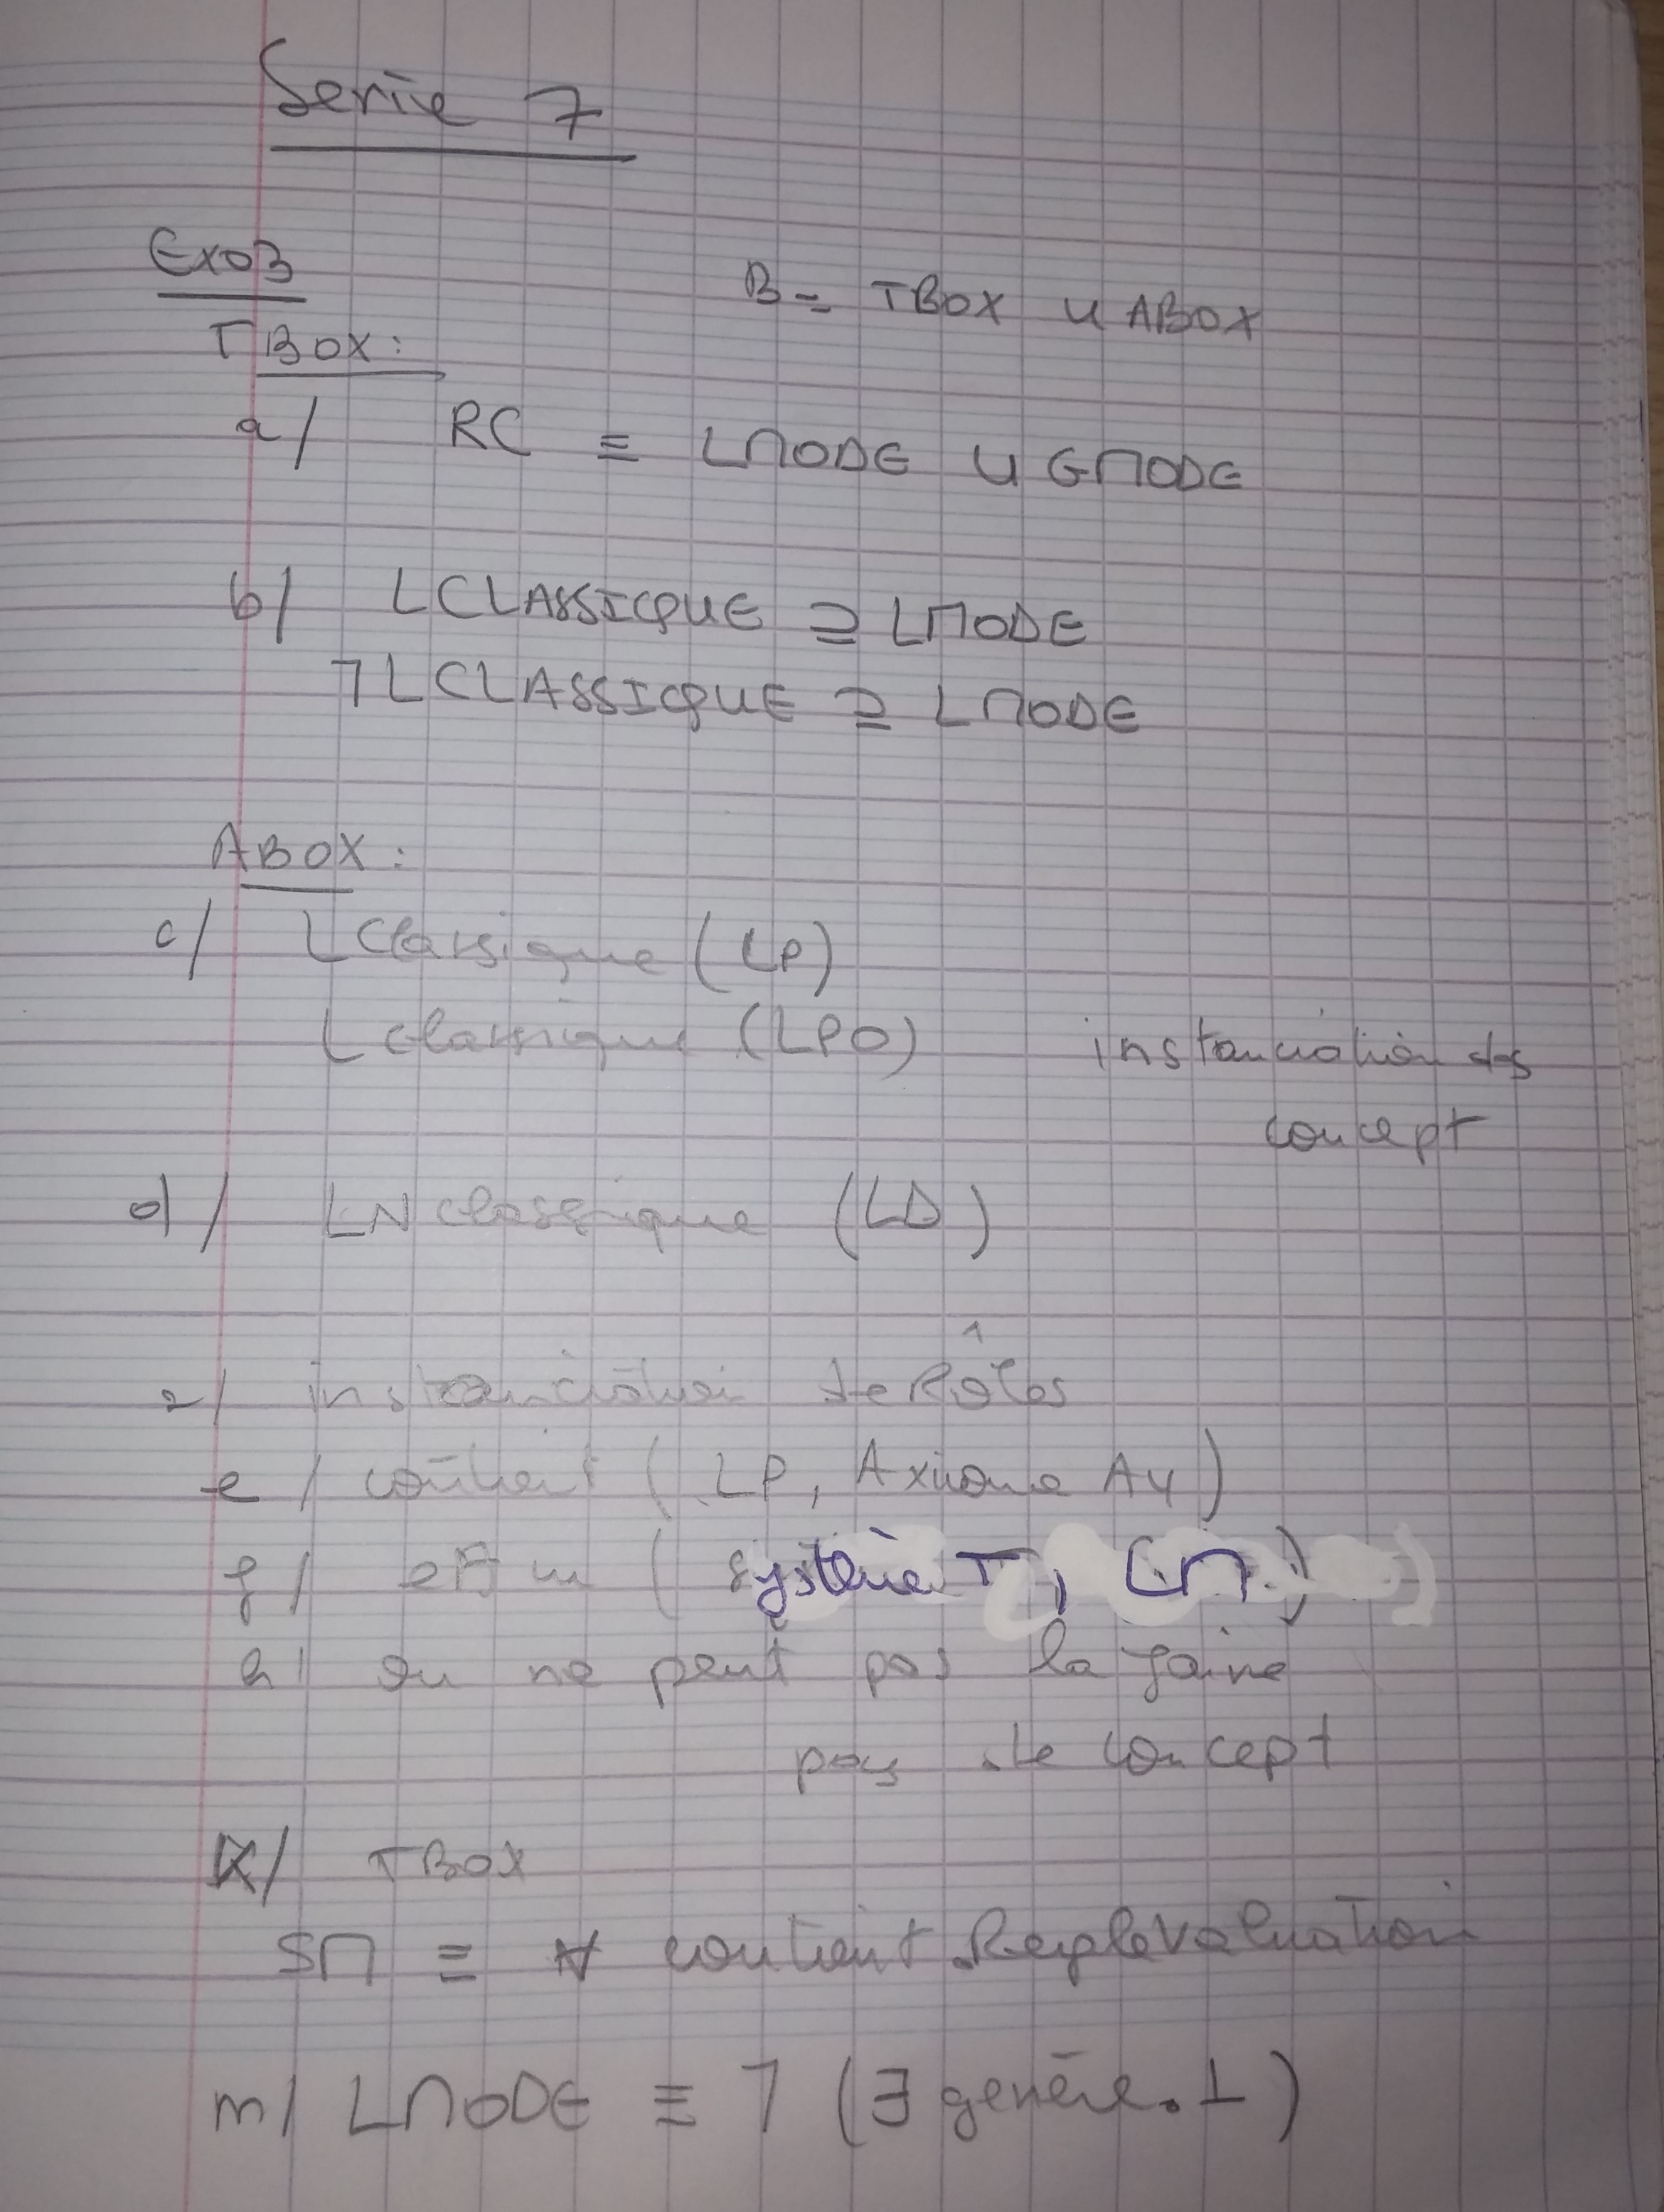 Serie 7
Exo3
B = TBOX ⊔ ABOX
TBOX :
a/ RC ≡ LMODE ⊔ GMODE
b/ LCLASSIQUE ⊇ LMODE
⌐LCLASSIQUE ⊇ LMODE
ABOX :
c/ LClassique (LP)
Lclassique (LPO) instanciation des
concept
d/ LNclassique (LD)
e/ instanciation de Rôles
e/ contient (LP, Axiome A4)
f/ (système T, LM)
h/ on ne peut pas la faire
pas de concept
K/ TBOX
SM ≡ ∀ contient.RegleValuation
m/ LMODE ≡ ⌐(∃ genère.⊥)